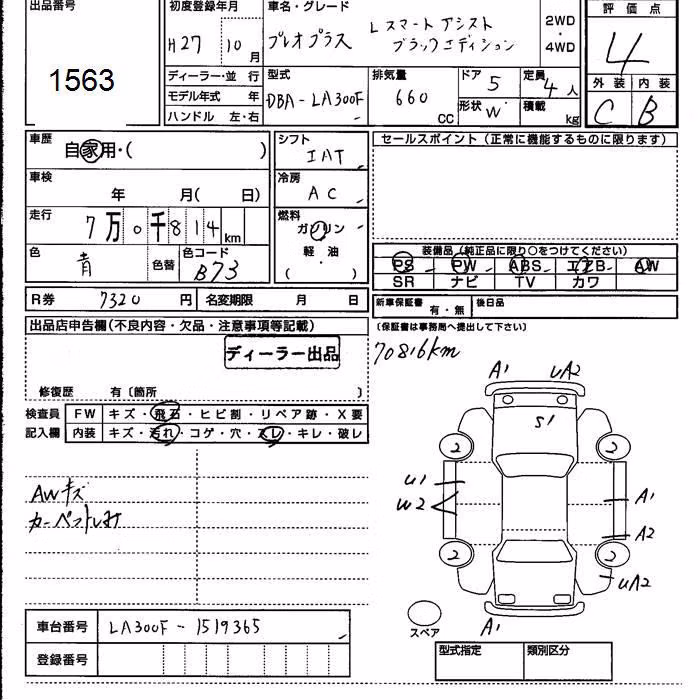 出品番号
1563
初度登録年月
H27 10月
車名・グレード
プレオプラス Lスマートアシスト
ブラックエディション
2WD
・
4WD
評価点
4
外装 内装
C B
ディーラー・並行
モデル年式 年
ハンドル 左・右
型式
DBA-LA300F
排気量
660
CC
ドア 5
形状 W
定員 4人
積載 kg
車歴
自家用・( )
車検
年 月( 日)
走行
7万0千814km
色
青
色替
色コード
B73
シフト
IAT
冷房
AC
燃料
ガソリン
軽・油
( ・ )
セールスポイント(正常に機能するものに限ります)
装備品(純正品に限り○をつけてください)
PS PW ABS エアB AW
SR ナビ TV カワ
R券 7320円 名変期限 月 日
新車保証書 有・無 後日品
(保証書は事務局へ提出して下さい)
70816km
出品店申告欄(不良内容・欠品・注意事項等記載)
ディーラー出品
修復歴 有〔箇所 〕
検査員 FW キズ・飛石・ヒビ割・リペア跡・X要
記入欄 内装 キズ・汚れ・コゲ・穴・スレ・キレ・破レ
AWキズ
カーペットしみ
A1 UA2
S1
2 2
U1
W2
A1
A2
2 2
UA2
A1
スペア
車台番号 LA300F-1519365
登録番号
型式指定 類別区分